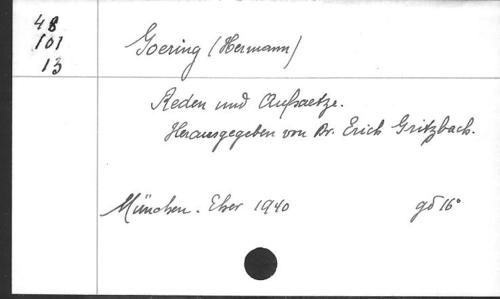 48
101
13
Goering (Hermann)
Reden und Aufsaetze.
Herausgegeben von Dr. Erich Gritzbach.
München. Eher 1940
gd 16°